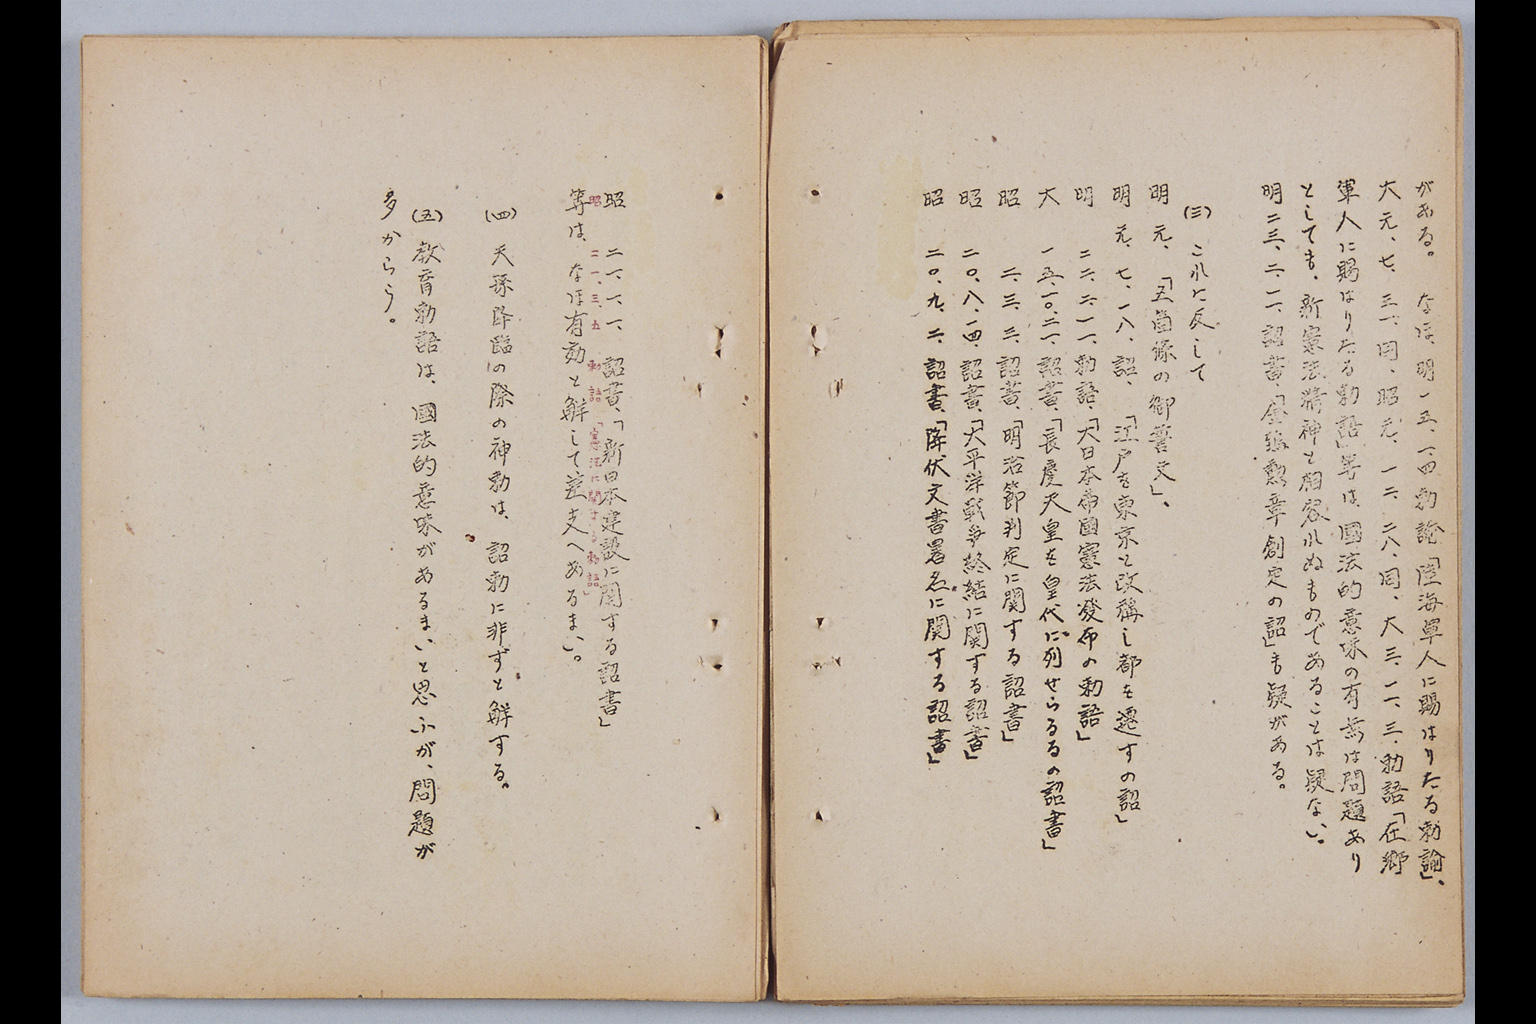 がある。なほ、明一五、一、四勅諭「陸海軍人に賜はりたる勅諭」、
大元、七、三一、同、昭元、一二、二八、同、大三、一一、三、勅語「在郷
軍人に賜はりたる勅語」等は、國法的意味の有無は問題あり
としても、新憲法精神と相容れぬものであることは疑ない。
明二三、二、一一、詔書、「金鵄勲章創定の詔」も疑がある。
(三) これに反して
明 元、「五箇條の御誓文」、
明 元、七、一八、詔、「江戸を東京と改稱し都を遷すの詔」
明 二二、二、一一、勅語、「大日本帝國憲法發布の勅語」
大 一五、一〇、二一、詔書、「長慶天皇を皇代に列せらるるの詔書」
昭 二、三、三、詔書、「明治節判定に関する詔書」
昭 二〇、八、一四、詔書、「大平洋戰爭終結に関する詔書」
昭 二〇、九、二、詔書、「降伏文書署名に関する詔書」
昭 二一、一、一、詔書、「新日本建設に関する詔書」
昭 二一、三、五 勅語「憲法に関する勅語」
等は、なほ有効と解して差支へあるまい。
(四) 天孫降臨の際の神勅は、詔勅に非ずと解する。
(五) 教育勅語は、國法的意味があるまいと思ふが、問題が
多からう。